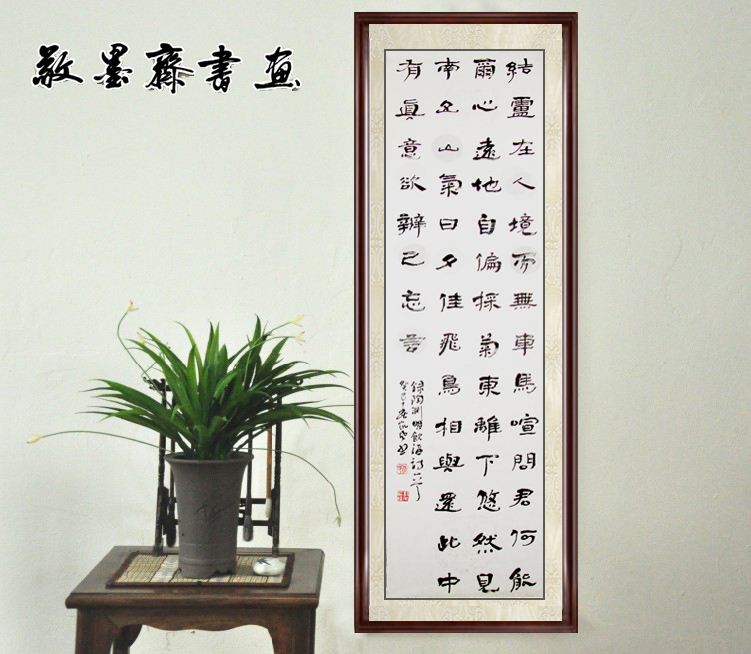 敬墨齋書画
結廬在人境而無車馬喧問君何能
爾心遠地自偏採菊東離下悠然見
南山山氣日夕佳飛鳥相與還此中
有眞意欲辨已忘言
錄陶淵明飲酒詩一首
癸巳